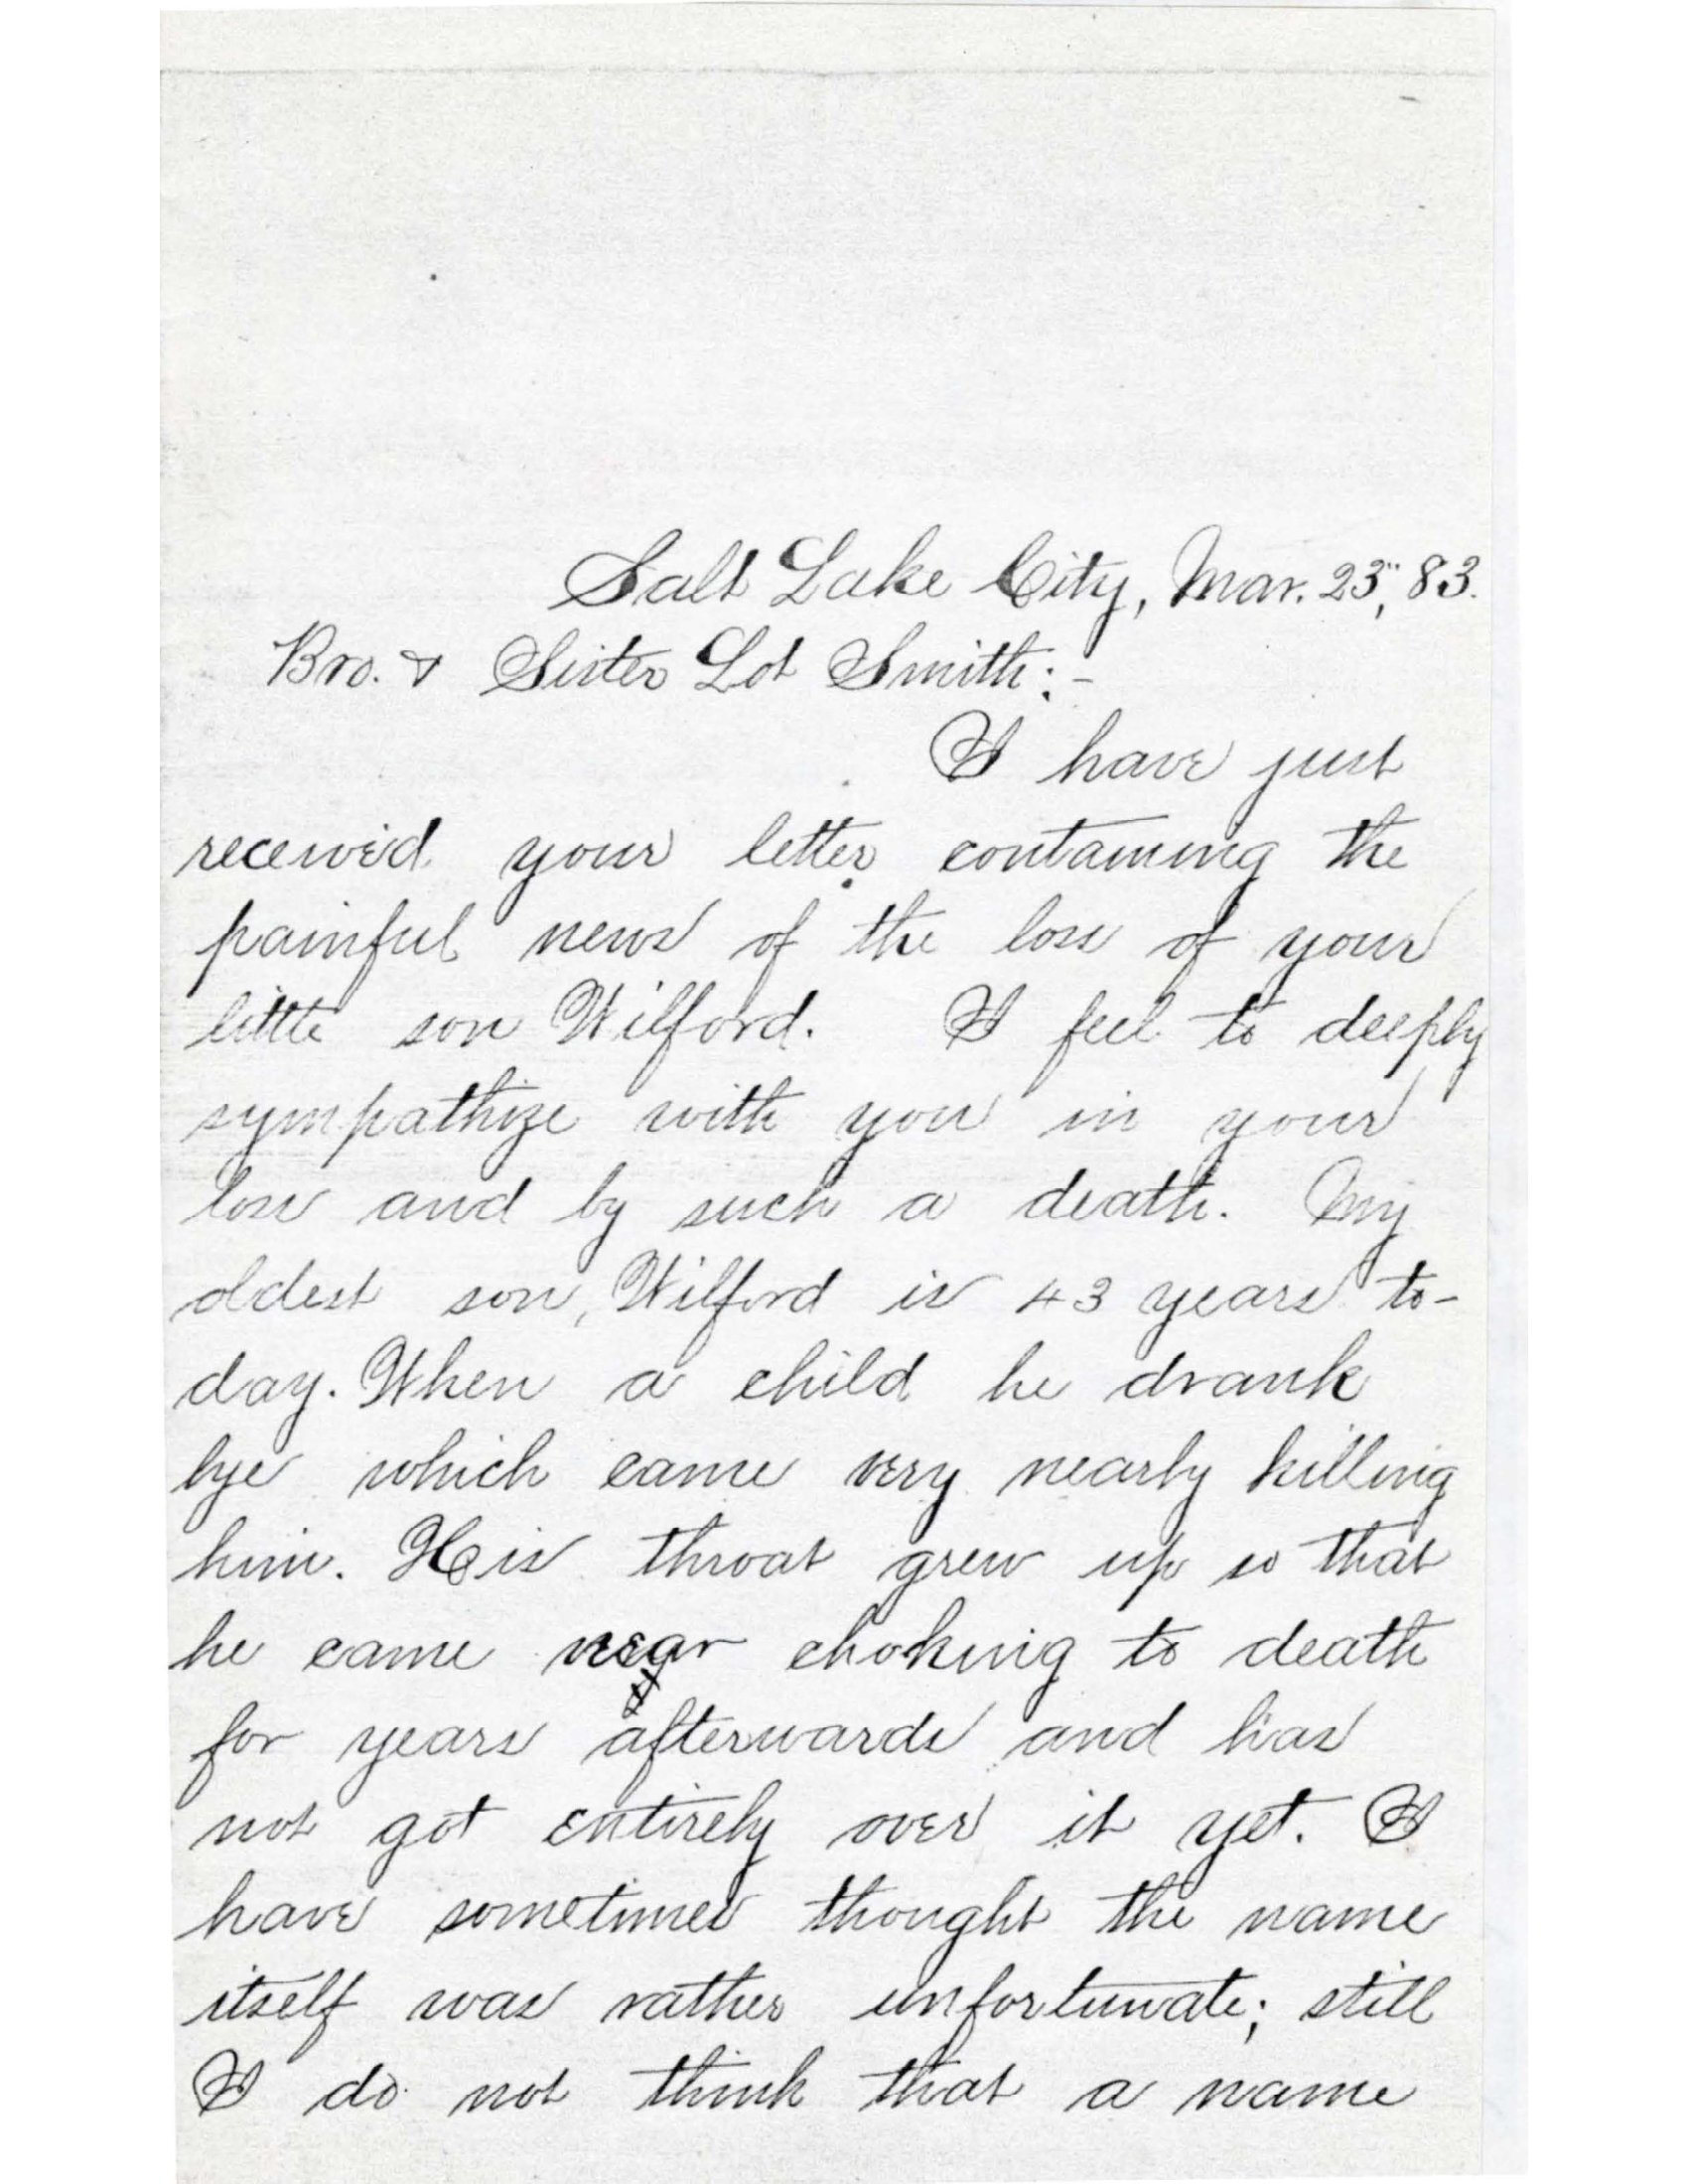 Salt Lake City, Mar. 23", 83.
Bro. & Sister Lot Smith:-
I have just
received your letter containing the
painful news of the loss of your
little son Wilford. I feel to deeply
sympathize with you in your
loss and by such a death. My
oldest son, Wilford is 43 years to-
day. When a child he drank
lye which came very nearly killing
him. His throat grew up so that
he came near choking to death
for years afterwards and has
not got entirely over it yet. I
have sometimes thought the name
itself was rather unfortunate; still
I do not think that a name